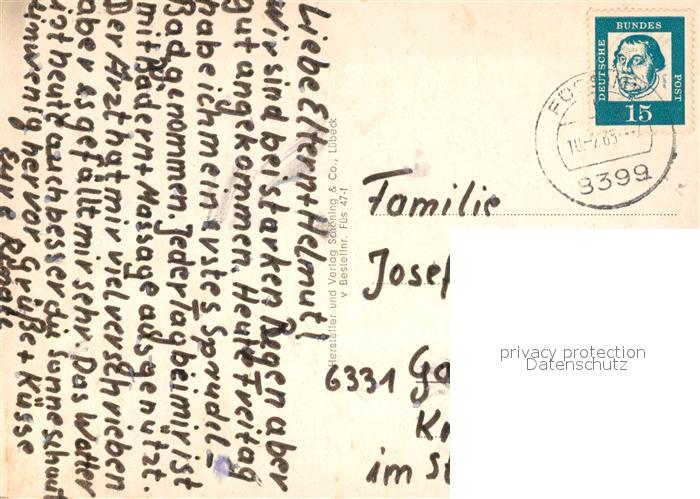 Liebe Eltern + Helmut!
wir sind bei starken Regen aber
gut angekommen. Heute Freitag
habe ich mein erstes Sprudel=
Bad genommen. Jeder Tag bei mir ist
mit Bädern + Massage ausgenützt.
Der Arzt hat mir viel verschrieben
aber es gefällt mir sehr. Das Wetter
ist heute auch besser die Sonne schaut
ein wenig hervor Grüße + Küsse
Eure
Hersteller und Verlag Schöning & Co., Lübeck
v Bestellnr. Füs 47-f
DEUTSCHE
BUNDES
POST
15
8399
Familie
Josef
6331
im
privacy protection
Datenschutz